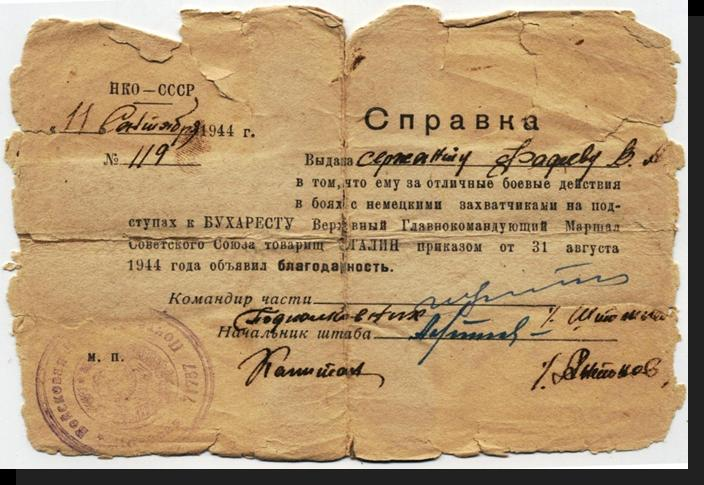 НКО—СССР
„11 Сентября 1944 г.
Справка
№ 119
Выдана сержанту Фадееву В. А
в том, что ему за отличные боевые действия
в боях с немецкими захватчиками на под-
ступах к БУХАРЕСТУ Верховный Главнокомандующий Маршал
Советского Союза товарищ СТАЛИН приказом от 31 августа
1944 года объявил благодарность.
Командир части
Подполковник
Начальник штаба
м. п.
Капитан
Войсковая